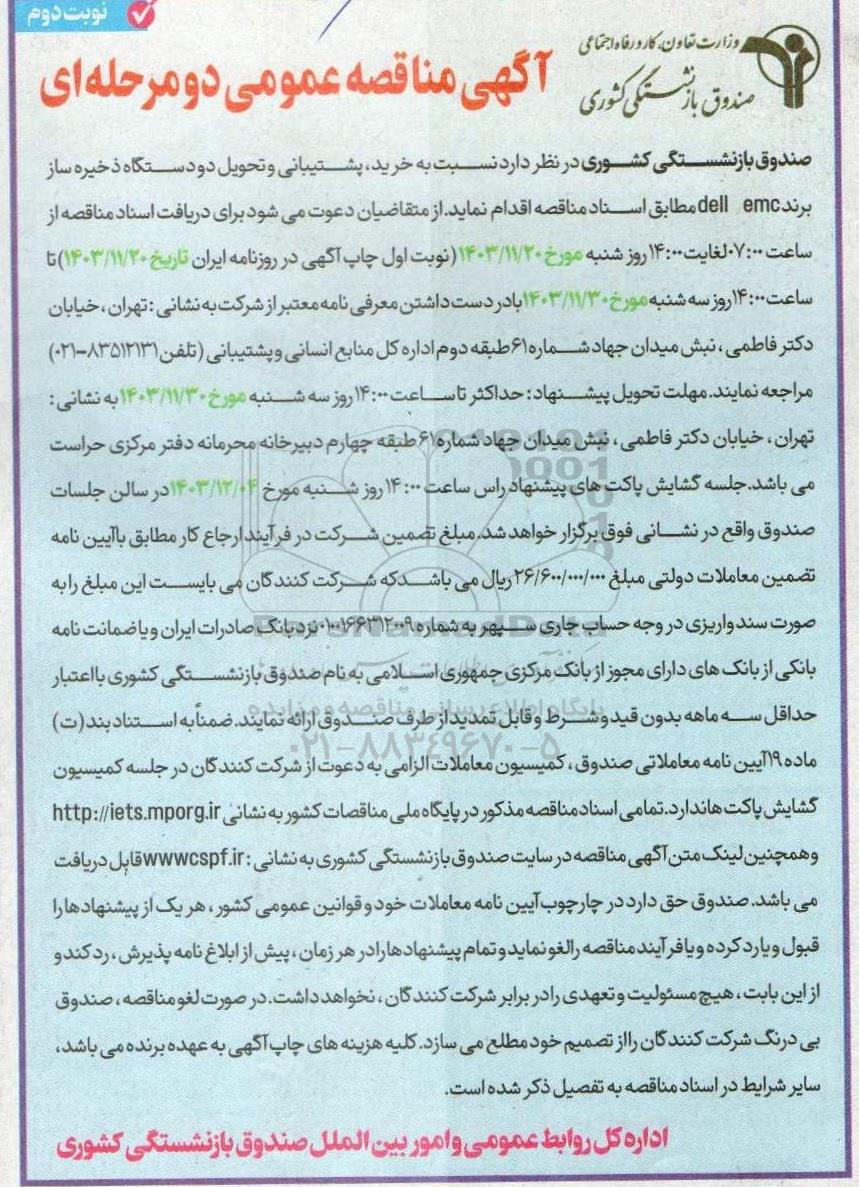 نوبت دوم
وزارت تعاون، کار و رفاه اجتماعی
صندوق بازنشستگی کشوری
آگهی مناقصه عمومی دو مرحله ای
صندوق بازنشستگی کشوری در نظر دارد نسبت به خرید، پشتیبانی و تحویل دو دستگاه ذخیره ساز
برند dell emc مطابق اسناد مناقصه اقدام نماید. از متقاضیان دعوت می شود برای دریافت اسناد مناقصه از
ساعت ۰۷:۰۰ لغایت ۱۴:۰۰ روز شنبه مورخ ۱۴۰۳/۱۱/۲۰ (نوبت اول چاپ آگهی در روزنامه ایران تاریخ ۱۴۰۳/۱۱/۲۰) تا
ساعت ۱۴:۰۰ روز سه شنبه مورخ ۱۴۰۳/۱۱/۳۰ با در دست داشتن معرفی نامه معتبر از شرکت به نشانی : تهران ، خیابان
دکتر فاطمی ، نبش میدان جهاد شماره ۶۱ طبقه دوم اداره کل منابع انسانی و پشتیبانی (تلفن ۸۳۵۱۲۱۳۱-۰۲۱)
مراجعه نمایند. مهلت تحویل پیشنهاد : حداکثر تا ساعت ۱۴:۰۰ روز سه شنبه مورخ ۱۴۰۳/۱۱/۳۰ به نشانی :
تهران ، خیابان دکتر فاطمی ، نبش میدان جهاد شماره ۶۱ طبقه چهارم دبیرخانه محرمانه دفتر مرکزی حراست
می باشد. جلسه گشایش پاکت های پیشنهاد راس ساعت ۱۴:۰۰ روز شنبه مورخ ۱۴۰۳/۱۲/۰۴ در سالن جلسات
صندوق واقع در نشانی فوق برگزار خواهد شد. مبلغ تضمین شرکت در فرآیند ارجاع کار مطابق با آیین نامه
تضمین معاملات دولتی مبلغ ۲۶/۶۰۰/۰۰۰/۰۰۰ ریال می باشد که شرکت کنندگان می بایست این مبلغ را به
صورت سند واریزی در وجه حساب جاری سپهر به شماره ۰۱۰۰۱۶۶۳۱۲۰۰۹ نزد بانک صادرات ایران و یا ضمانت نامه
بانکی از بانک های دارای مجوز از بانک مرکزی جمهوری اسلامی به نام صندوق بازنشستگی کشوری با اعتبار
حداقل سه ماهه بدون قید و شرط و قابل تمدید از طرف صندوق ارائه نمایند. ضمناً به استناد بند (ت)
ماده ۱۹ آیین نامه معاملاتی صندوق ، کمیسیون معاملات الزامی به دعوت از شرکت کنندگان در جلسه کمیسیون
گشایش پاکت ها ندارد. تمامی اسناد مناقصه مذکور در پایگاه ملی مناقصات کشور به نشانی http://iets.mporg.ir
و همچنین لینک متن آگهی مناقصه در سایت صندوق بازنشستگی کشوری به نشانی : wwwcspf.ir قابل دریافت
می باشد. صندوق حق دارد در چارچوب آیین نامه معاملات خود و قوانین عمومی کشور ، هر یک از پیشنهادها را
قبول و یا رد کرده و یا فرآیند مناقصه را لغو نماید و تمام پیشنهادها را در هر زمان ، پیش از ابلاغ نامه پذیرش ، رد کند و
از این بابت ، هیچ مسئولیت و تعهدی را در برابر شرکت کنندگان ، نخواهد داشت. در صورت لغو مناقصه ، صندوق
بی درنگ شرکت کنندگان را از تصمیم خود مطلع می سازد. کلیه هزینه های چاپ آگهی به عهده برنده می باشد،
سایر شرایط در اسناد مناقصه به تفصیل ذکر شده است.
اداره کل روابط عمومی و امور بین الملل صندوق بازنشستگی کشوری
پایگاه اطلاع رسانی مناقصه و مزایده
۰۲۱-۸۸۳۴۹۶۷۰-۵